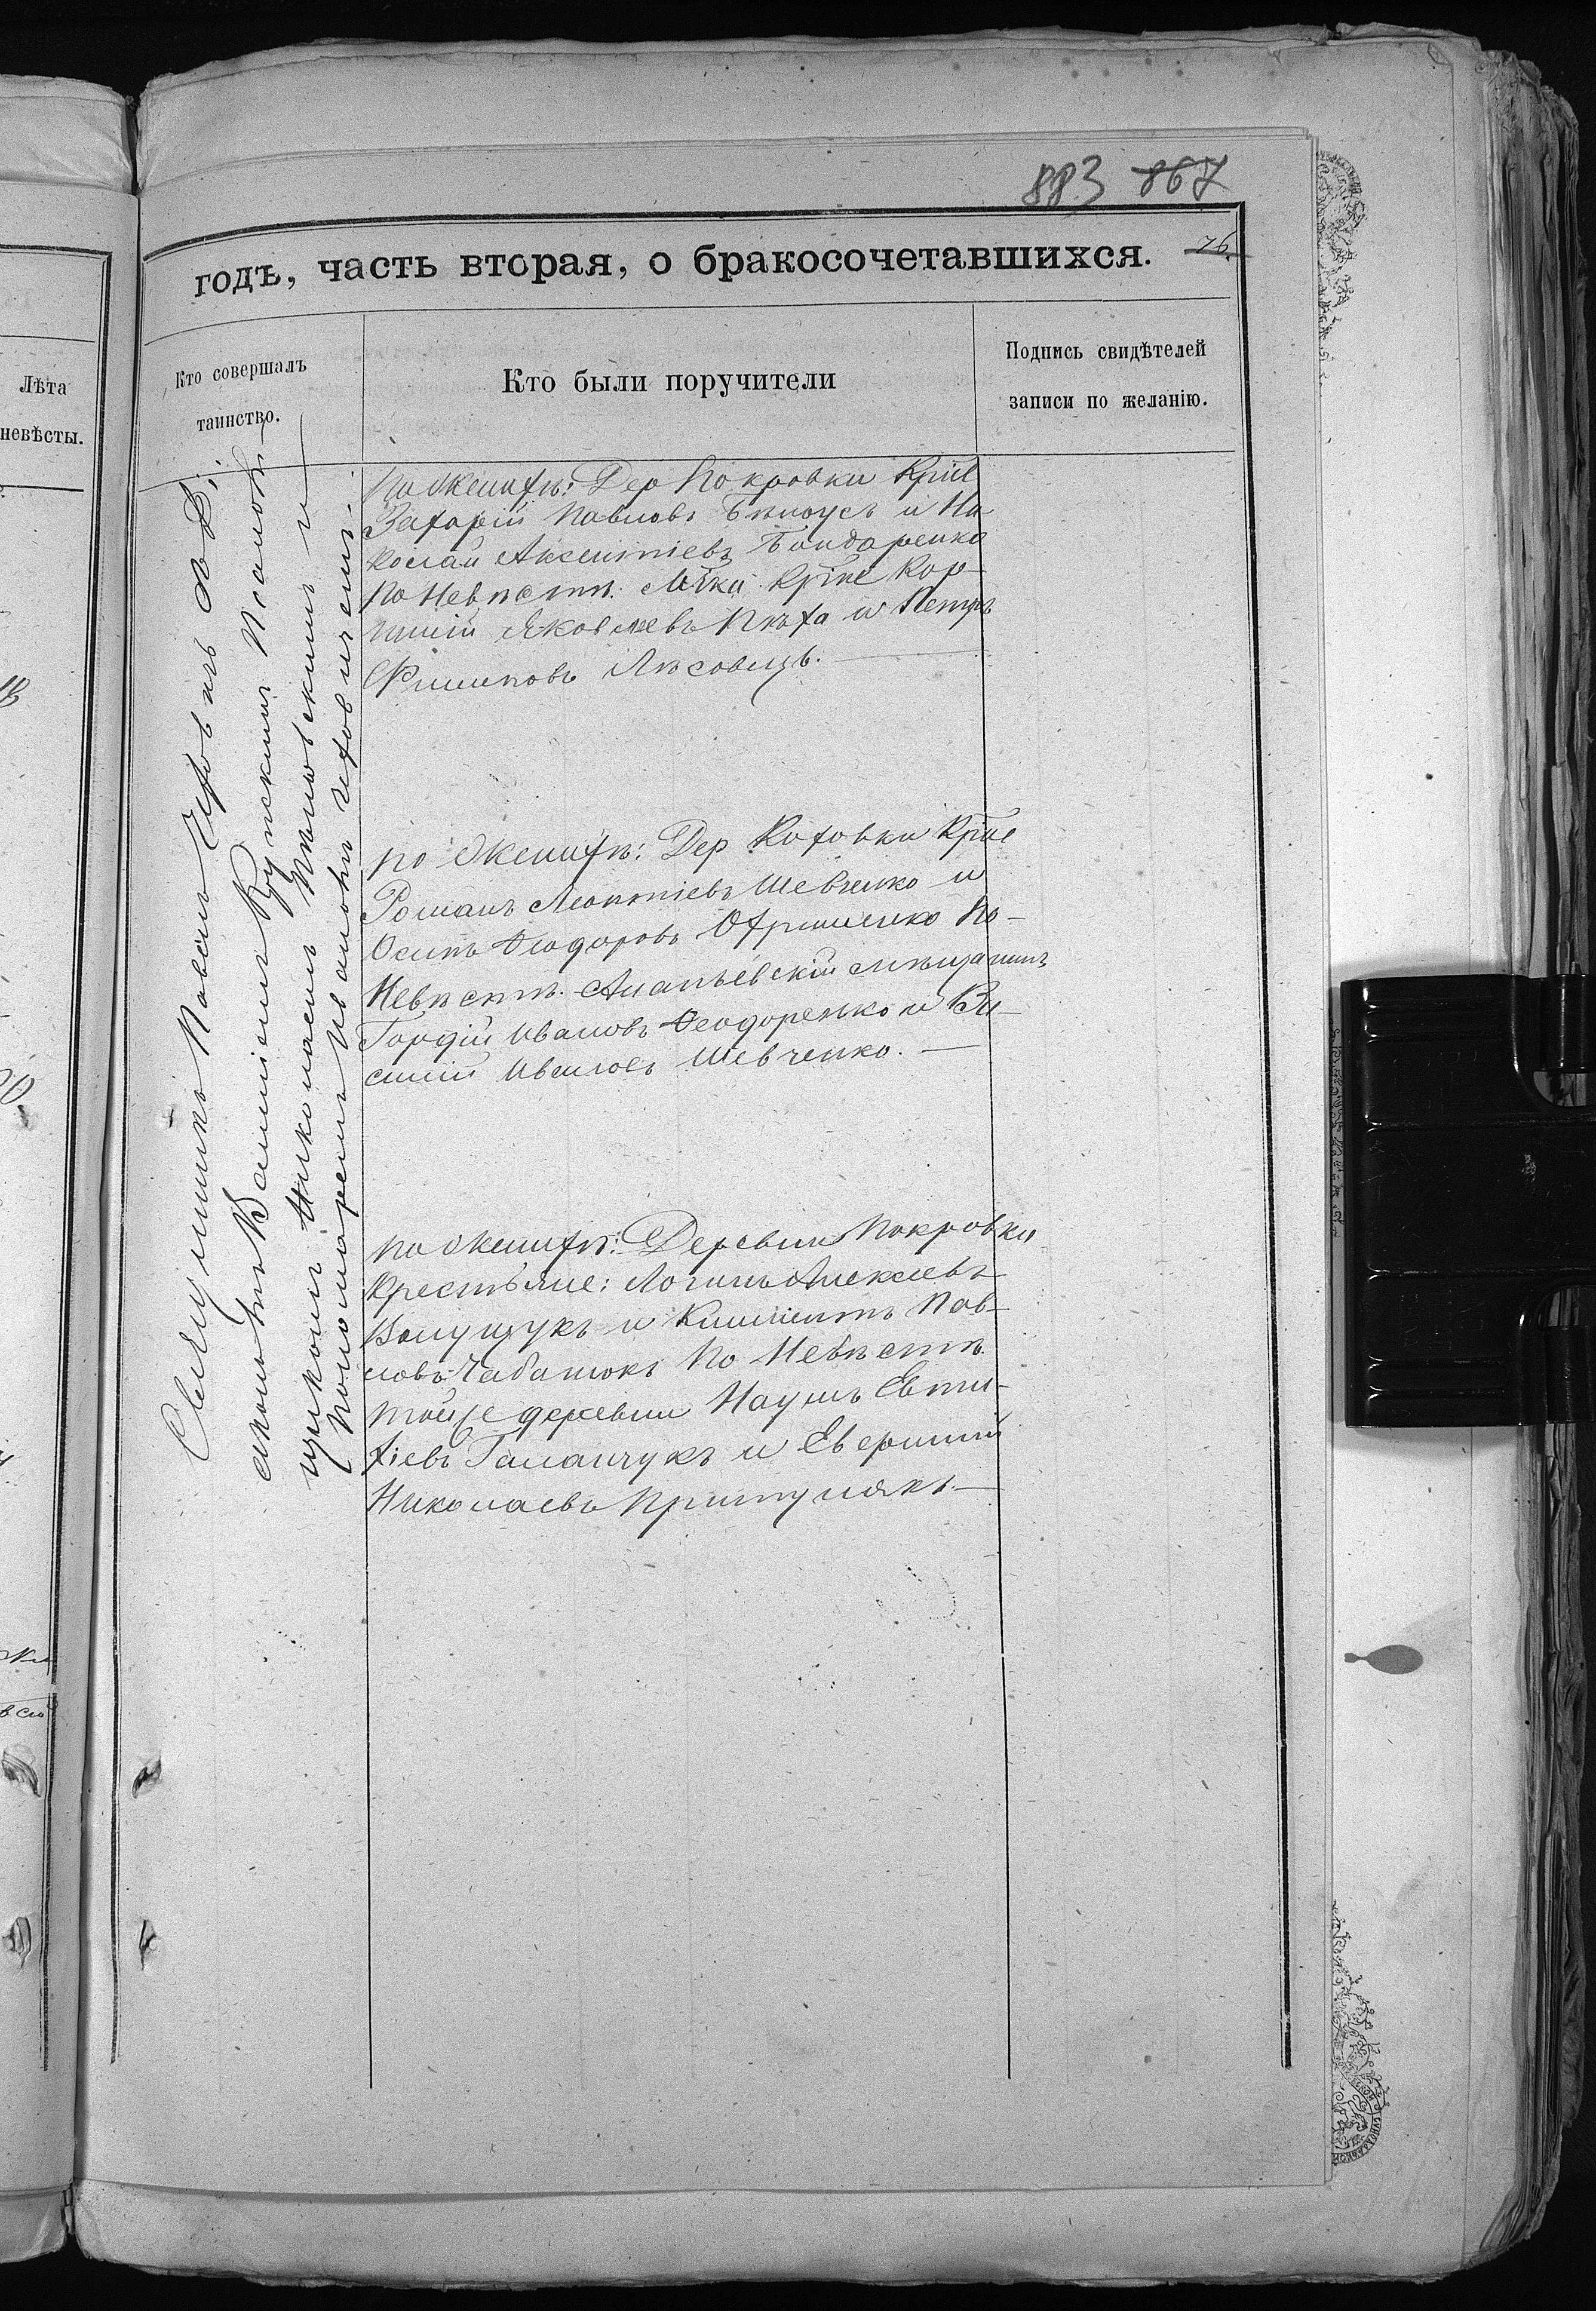 883 867
годъ, часть вторая, о бракосочетавшихся. 76
Лѣта
невѣсты.
Кто совершалъ
таинство.
Кто были поручители
Подпись свидѣтелей
записи по желанію.
Священникъ Павелъ
Василіемъ Псаломщ
щикомъ Николаемъ и
Пономаремъ
по Женихѣ: Дер Покровки Крне
Захарій Павловъ Бѣлоусъ и Ни
колай Аксентіевъ Бондаренко
По Невѣстѣ. Крне Кор-
нилій Яковлевъ и Петръ
Филиповъ Лѣсовецъ.
по Женихѣ: Дер Котовки Крне
Романъ Леонтіевъ Шевченко и
Осипъ Ѳеодоровъ Охрименко По
Невѣстѣ. Ананьевскій мѣщанинъ
Гордій Ивановъ Ѳеодоренко и Ва
силій Ивановъ Шевченко.
по Женихѣ: Деревни Покровки
Крестьяне: Логинъ Алексѣевъ
и Климентъ Пав-
ловъ Чабанюкъ По Невѣстѣ
тойже деревни Наумъ Евти-
хіевъ Галанчукъ и
Николаевъ Притулякъ.